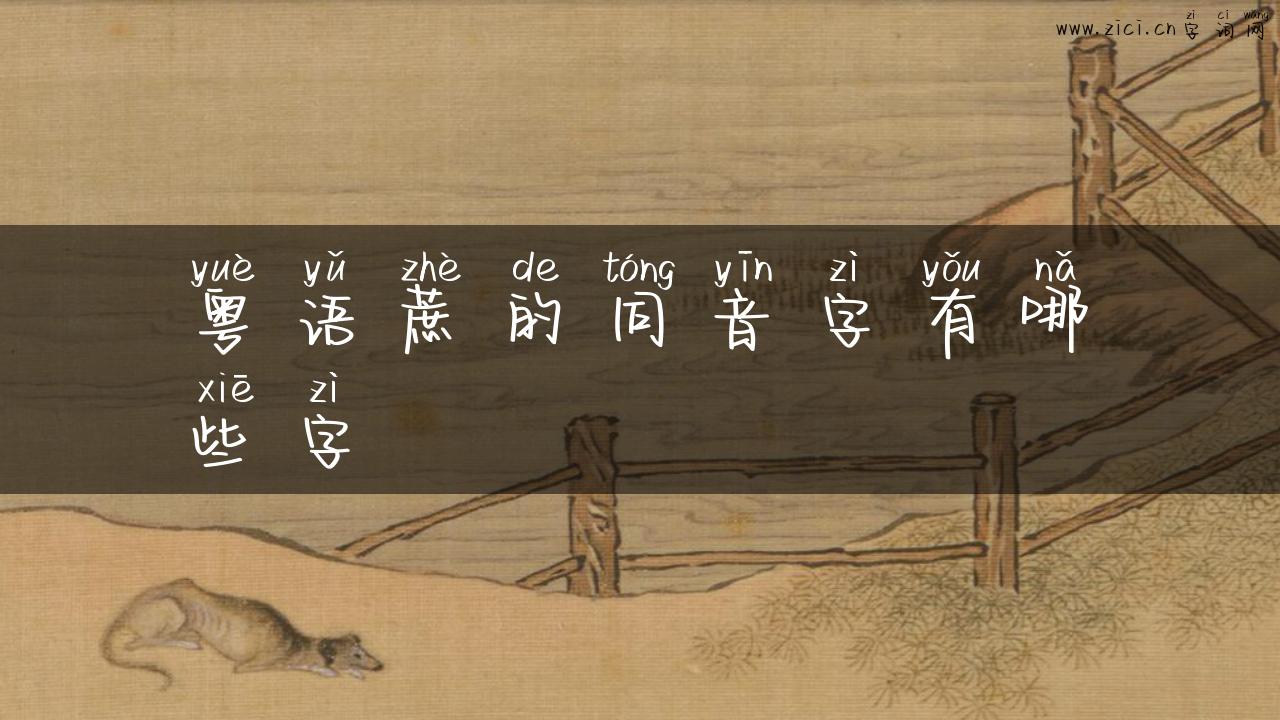 zì cí wǎng
www.zici.cn 字词网
yuè yǔ zhè de tóng yīn zì yǒu nǎ
粤语蔗的同音字有哪
xiē zì
些字